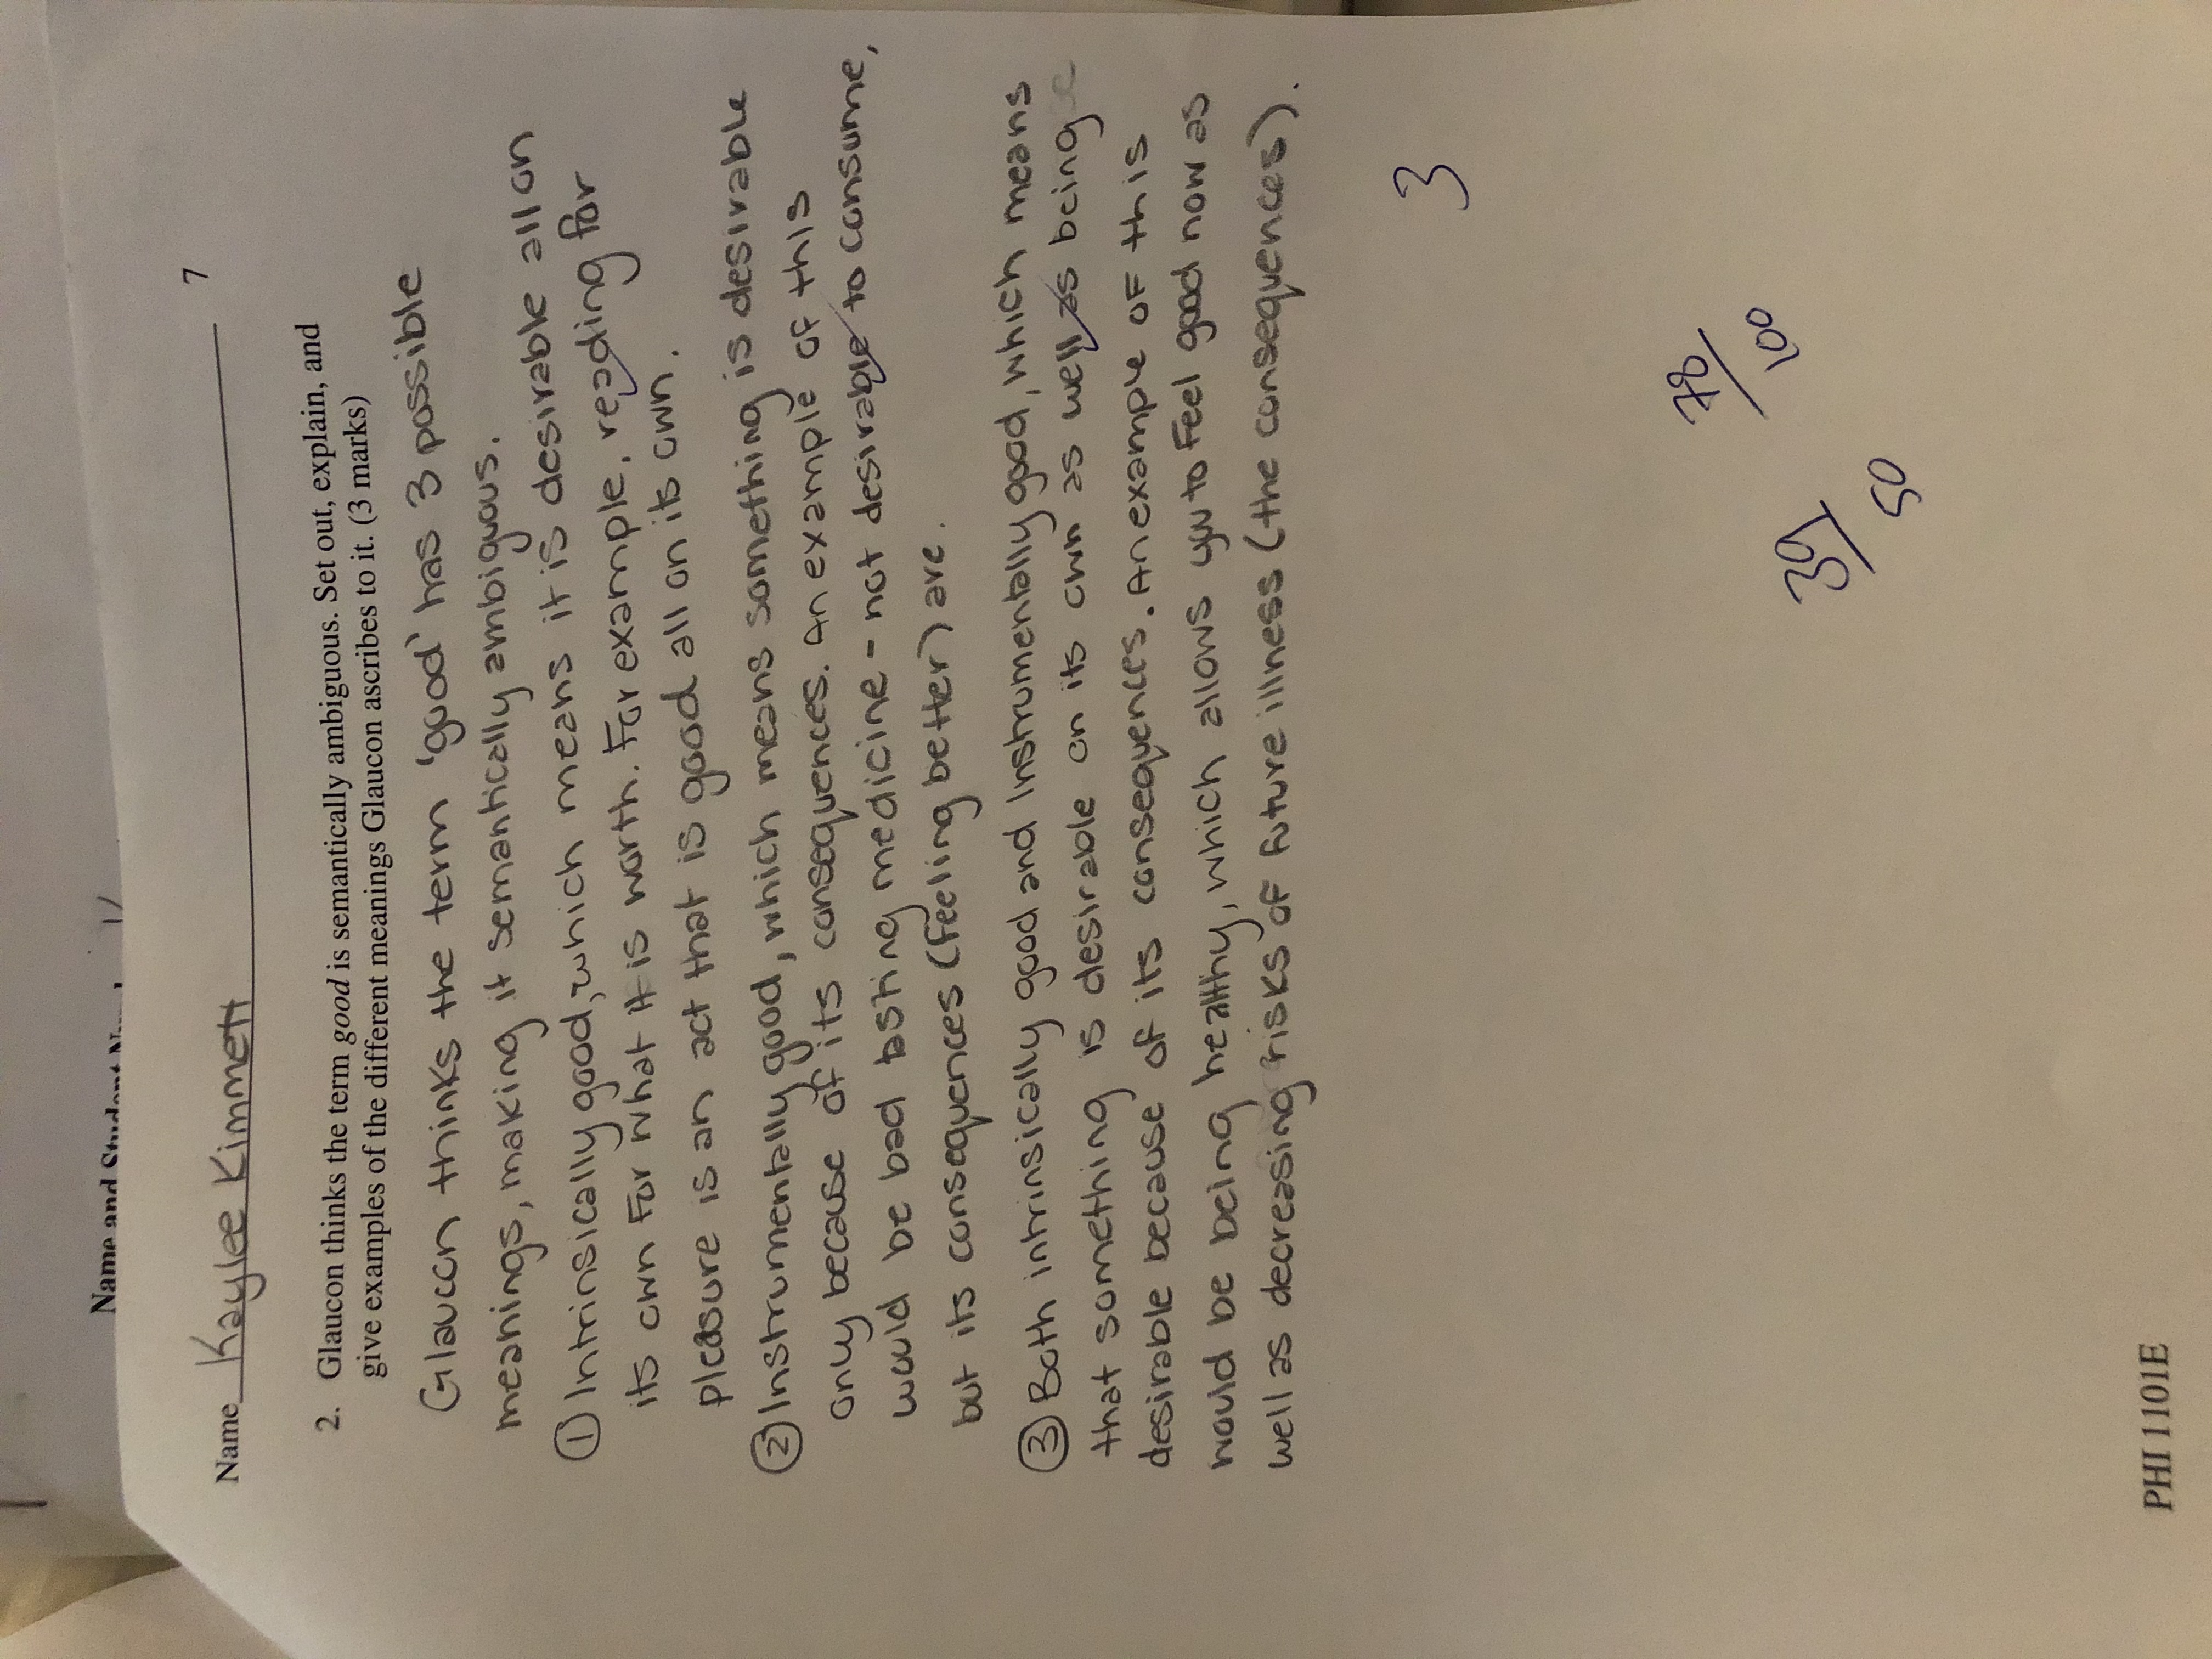 Name and Student
Name Kaylee Kimmett
7
2. Glaucon thinks the term good is semantically ambiguous. Set out, explain, and
give examples of the different meanings Glaucon ascribes to it. (3 marks)
Glaucon thinks the term 'good' has 3 possible
meanings, making it semantically ambiguous.
① Intrinsically good, which means it is desirable all on
its own for what it is worth. For example, reading for
pleasure is an act that is good all on its own.
② Instrumentally good, which means something is desirable
only because of its consequences. An example of this
would be bad tasting medicine - not desirable to consume,
but its consequences (feeling better) are.
③ Both intrinsically good and Instrumentally good, which means
that something is desirable on its own as well as being
desirable because of its consequences. An example of this
would be being healthy, which allows you to feel good now as
well as decreasing risks of future illness (the consequences).
3
78/100
39/50
PHI 1101E